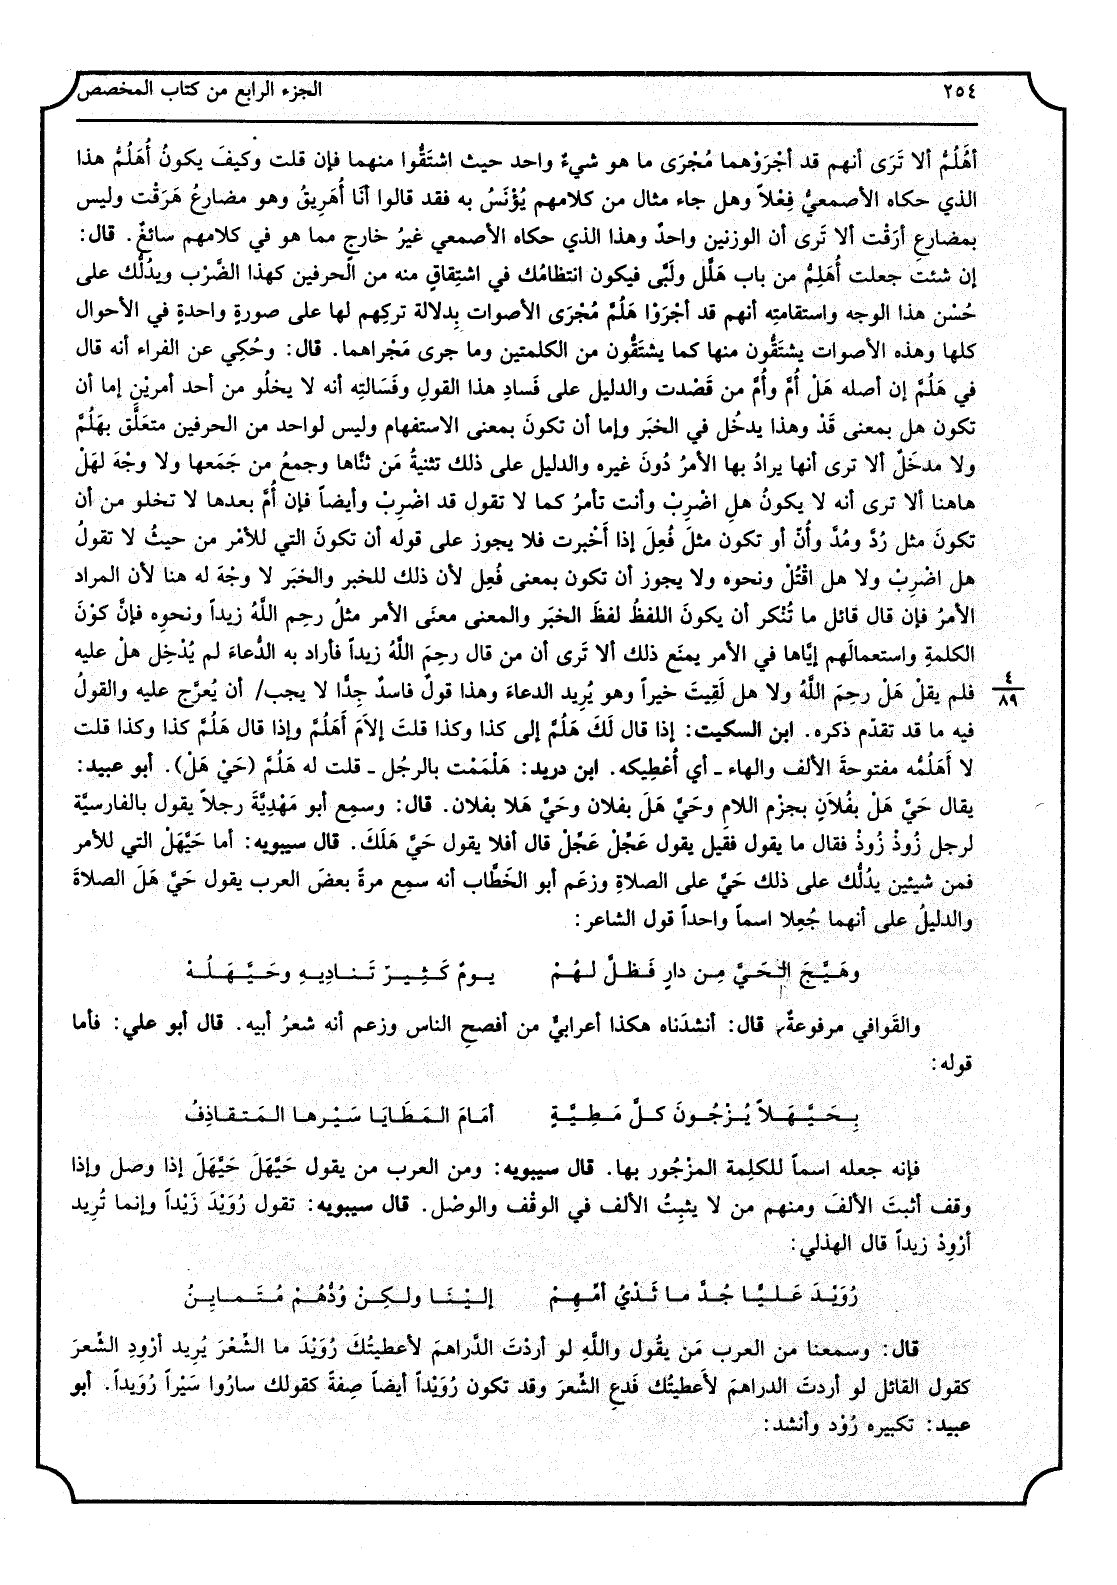 ٢٥٤
الجزء الرابع من كتاب المخصص
أَهَلُمُّ ألا تَرَى أنهم قد أجْرَوْهما مُجْرَى ما هو شيءٌ واحد حيث اشتَقُّوا منهما فإن قلت وكيفَ يكونُ أُهَلُمُّ هذا
الذي حكاه الأصمعيُّ فِعْلاً وهل جاء مثال من كلامهم يُؤْنَسُ به فقد قالوا أنَا أُهَرِيقُ وهو مضارعُ هَرَقْت وليس
بمضارعِ أرَقْت ألا تَرى أن الوزنين واحدٌ وهذا الذي حكاه الأصمعي غيرُ خارجٍ مما هو في كلامهم سائغٌ. قال:
إن شئت جعلت أُهَلِمُّ من باب هَلَّل ولَبَّى فيكون انتظامُك في اشتِقاقٍ منه من الحرفين كهذا الضَّرْب ويدُلُّك على
حُسْن هذا الوجه واستقامتِه أنهم قد أجْرَوْا هَلُمَّ مُجْرَى الأصوات بِدلالة تركِهم لها على صورةٍ واحدةٍ في الأحوال
كلها وهذه الأصوات يشتَقُّون منها كما يشتَقُّون من الكلمتين وما جرى مَجْراهما. قال: وحُكِي عن الفراء أنه قال
في هَلُمَّ إن أصله هَلْ أُمَّ وأُمَّ من قَصَدت والدليل على فَسادِ هذا القولِ وفَسَالتِه أنه لا يخلُو من أحد أمريْنِ إما أن
تكون هل بمعنى قَدْ وهذا يدخُل في الخبَر وإما أن تكونَ بمعنى الاستفهام وليس لواحد من الحرفين متعَلَّق بهَلُمَّ
ولا مدخَلٌ ألا ترى أنها يرادُ بها الأمرُ دُونَ غيره والدليل على ذلك تثنيةُ مَن ثنَّاها وجمعُ من جَمَعها ولا وجْهَ لهَلْ
هاهنا ألا ترى أنه لا يكونُ هلِ اضْرِبْ وأنت تأمرُ كما لا تقول قد اضْرِبْ وأيضاً فإن أُمَّ بعدها لا تخلو من أن
تكونَ مثل رُدَّ ومُدَّ وأُنَّ أو تكون مثلَ فُعِلَ إذا أَخْبرت فلا يجوز على قوله أن تكونَ التي للأمْر من حيثُ لا تقولُ
هل اضْرِبْ ولا هل اقْتُلْ ونحوه ولا يجوز أن تكون بمعنى فُعِل لأن ذلك للخبر والخبَر لا وجْهَ له هنا لأن المراد
الأمرُ فإن قال قائل ما تُنْكر أن يكونَ اللفظُ لفظَ الخبَر والمعنى معنَى الأمر مثلُ رحِم اللَّهُ زيداً ونحوِه فإنَّ كوْنَ
الكلمةِ واستعمالَهم إيَّاها في الأمر يمنَع ذلك ألا تَرى أن من قال رحِمَ اللَّهُ زيداً فأراد به الدُّعاءَ لم يُدْخِل هلْ عليه
فلم يقلْ هَلْ رحِمَ اللَّهُ ولا هل لَقِيتَ خيراً وهو يُرِيد الدعاءَ وهذا قولٌ فاسدٌ جِدًّا لا يجب/ أن يُعرَّج عليه والقولُ
٤
٨٩
فيه ما قد تقدّم ذكره. ابن السكيت: إذا قال لَكَ هَلُمَّ إلى كذا وكذا قلتَ إلاَمَ أَهَلُمَّ وإذا قال هَلُمَّ كذا وكذا قلت
لا أَهَلُمُّه مفتوحةَ الألف والهاء ـ أي أُعْطِيكه. ابن دريد: هَلْمَمْت بالرجُل ـ قلت له هَلُمَّ (حَيْ هَلْ). أبو عبيد:
يقال حَيَّ هَلْ بفُلاَنٍ بجزْم اللام وحَيَّ هَلَ بفلان وحَيَّ هَلا بفلان. قال: وسمِع أبو مَهْدِيَّةَ رجلاً يقول بالفارسيَّة
لرجل زُوذْ زُوذْ فقال ما يقول فقيل يقول عَجِّلْ عَجِّلْ قال أفلا يقول حَيَّ هَلَكَ. قال سيبويه: أما حَيَّهَلْ التي للأمر
فمن شيئين يدُلُّك على ذلك حَيَّ على الصلاةِ وزعَم أبو الخَطَّاب أنه سمِع مرةً بعضَ العرب يقول حَيَّ هَلَ الصلاةَ
والدليلُ على أنهما جُعِلا اسماً واحداً قول الشاعر:
وهَيَّجَ الحَيَّ مِن دارٍ فَظَلَّ لهُمْ يومٌ كَثِيرٌ تَنادِيهِ وحَيَّهَلُهْ
والقَوافي مرفوعةٌ، قال: أنشدَناه هكذا أعرابيٌّ من أفصحِ الناس وزعم أنه شعرُ أبيه. قال أبو علي: فأما
قوله:
بِحَيَّهَلاً يُزْجُونَ كلَّ مَطِيَّةٍ أمَامَ المَطَايَا سَيْرها المَتَقاذِفُ
فإنه جعله اسماً للكلِمة المزْجُور بها. قال سيبويه: ومن العرب من يقول حَيَّهَلَ حَيَّهَلَ إذا وصل وإذا
وقف أثبتَ الألفَ ومنهم من لا يثبِتُ الألف في الوقْف والوصْل. قال سيبويه: تقول رُوَيْدَ زَيْداً وإنما تُرِيد
أرْوِدْ زيداً قال الهذلي:
رُوَيْدَ عَلِيًّا جُدَّ ما ثَدْيُ أمِّهِمْ إليْنَا ولكِنْ وُدُّهُمْ مُتَمايِنُ
قال: وسمعنا من العرب مَن يقُول واللَّهِ لو أردْتَ الدَّراهمَ لأعطيتُكَ رُوَيْدَ ما الشِّعْرَ يُرِيد أرْودِ الشِّعرَ
كقول القائل لو أردتَ الدراهمَ لأَعطيتُك فَدعِ الشِّعرَ وقد تكون رُوَيْداً أيضاً صِفةً كقولك سارُوا سَيْراً رُوَيداً. أبو
عبيد: تكبيره رُوْد وأنشد: